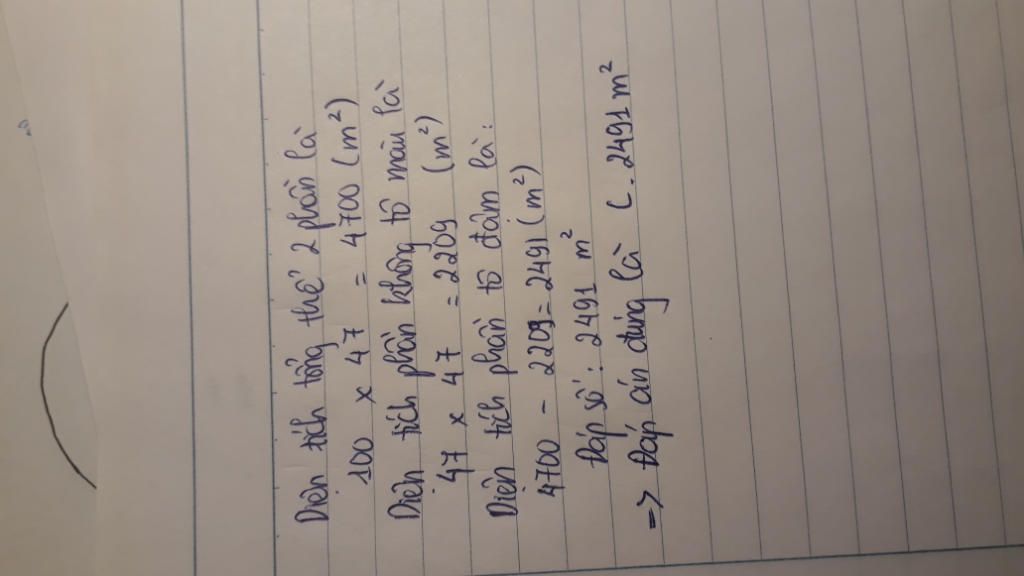 Diện tích tổng thể 2 phần là
100 x 47 = 4700 (m²)
Diện tích phần không tô màu là
47 x 47 = 2209 (m²)
Diện tích phần tô đậm là:
4700 - 2209 = 2491 (m²)
Đáp số: 2491 m²
=> Đáp án đúng là C. 2491 m²